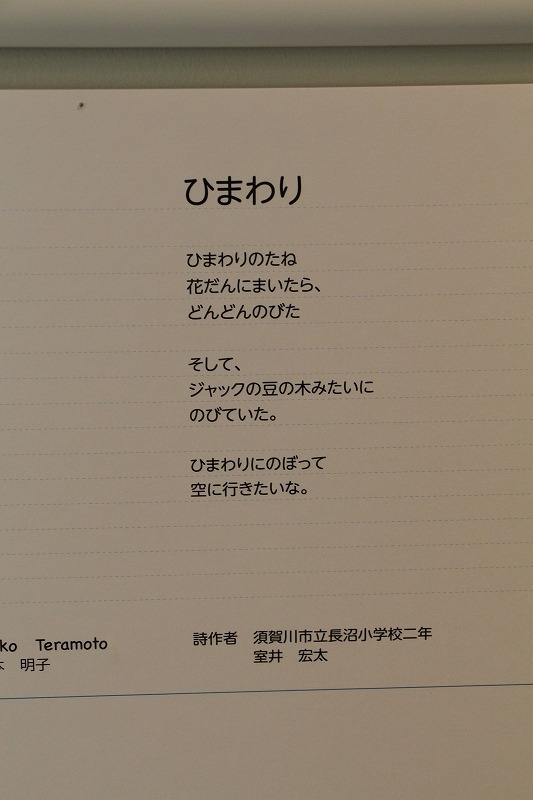 ひまわり
ひまわりのたね
花だんにまいたら、
どんどんのびた
そして、
ジャックの豆の木みたいに
のびていた。
ひまわりにのぼって
空に行きたいな。
ko Teramoto
明子
詩作者 須賀川市立長沼小学校二年
室井 宏太